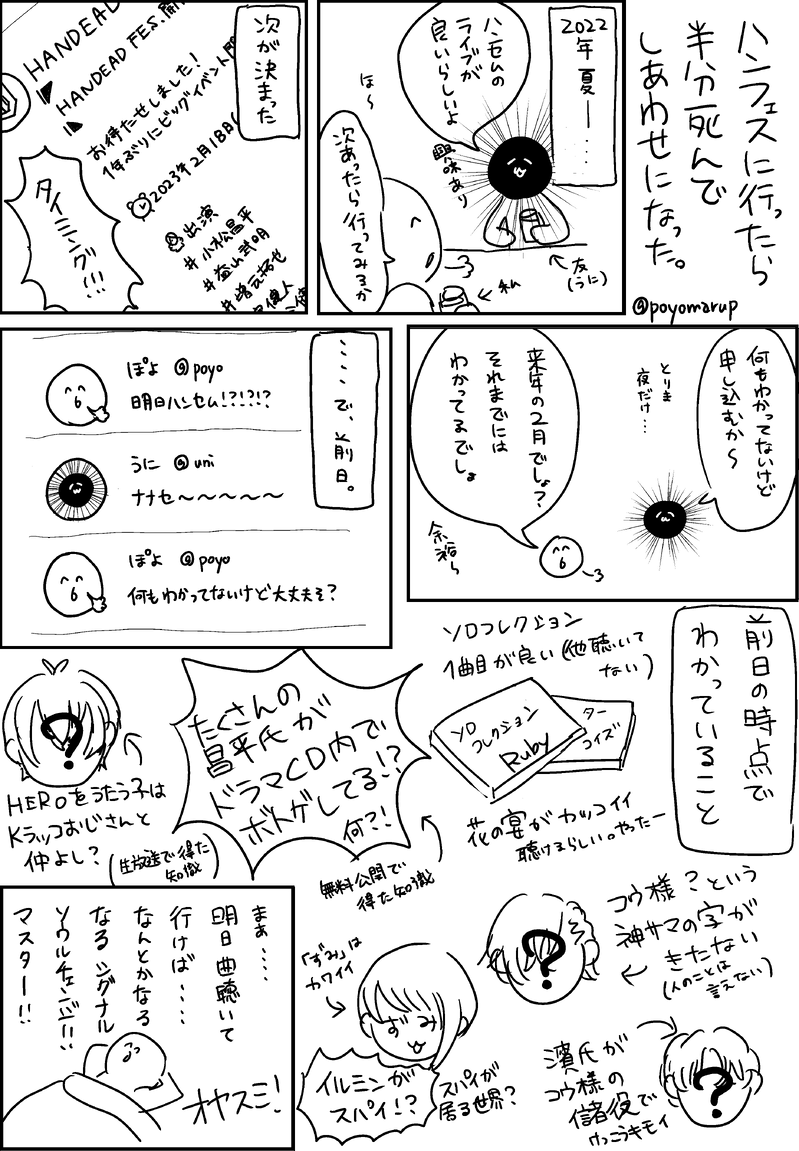 ハンフェスに行ったら
半分死んで
しあわせになった。
@poyomarup
2022
年 夏―……
ハンセムの
ライブが
良いらしいよ
興味あり
ほ〜
次あったら行ってみるか
←私
友
(うに)
次が決まった
HANDEAD
HANDEAD FES.開
お待たせしました!
1年ぶりにビッグイベント開
2023年2月18日(
出演
#小松昌平
#益山武明
#増元拓也
タイニング!!!
何もわかってないけど
申し込むか〜
とりま
夜だけ…
来年の2月でしょ?
それまでには
わかってるでしょ
余裕ら
……で、前日。
ぽよ @poyo
明日ハンセム!?!?!?
うに @uni
ナナセ〜〜〜〜〜
ぽよ @poyo
何もわかってないけど大丈夫そ?
前日の時点で
わかっていること
ソロコレクション
1曲目が良い(他聴いて
ない)
ソロ
コレクション
Ruby
ター
コイズ
花の宴がカッコイイ
聴けるらしい。やったー
たくさんの
昌平氏が
ドラマCD内で
ボドゲしてる!?
何?!
無料公開で
得た知識
?
HEROをうたう子は
Kラッコおじさんと
仲よし?
(生放送で得た
知識)
コウ様?という
神サマの字が
きたない
(人のことは
言えない)
?
「ずみ」は
カワイイ
ずみ
イルミンが
スパイ!?
スパイが
居る世界?
濱氏が
コウ様の
儲役で
けっこうキモイ
?
まぁ……
明日曲聴いて
行けば……
なんとかなる
なるシグナル
ソウルチェンジ!!
マスター!!
オヤスミ!